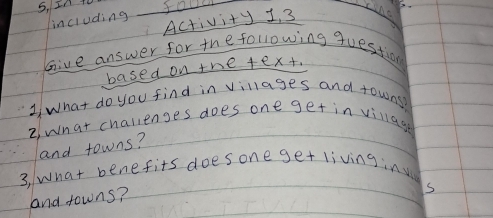 5, In
including
Activity 1.3
Give answer for the following question
based on the text.
1, What do you find in villages and towns?
2, What challenges does one get in village
and towns?
3, What benefits does one get living in
and towns?